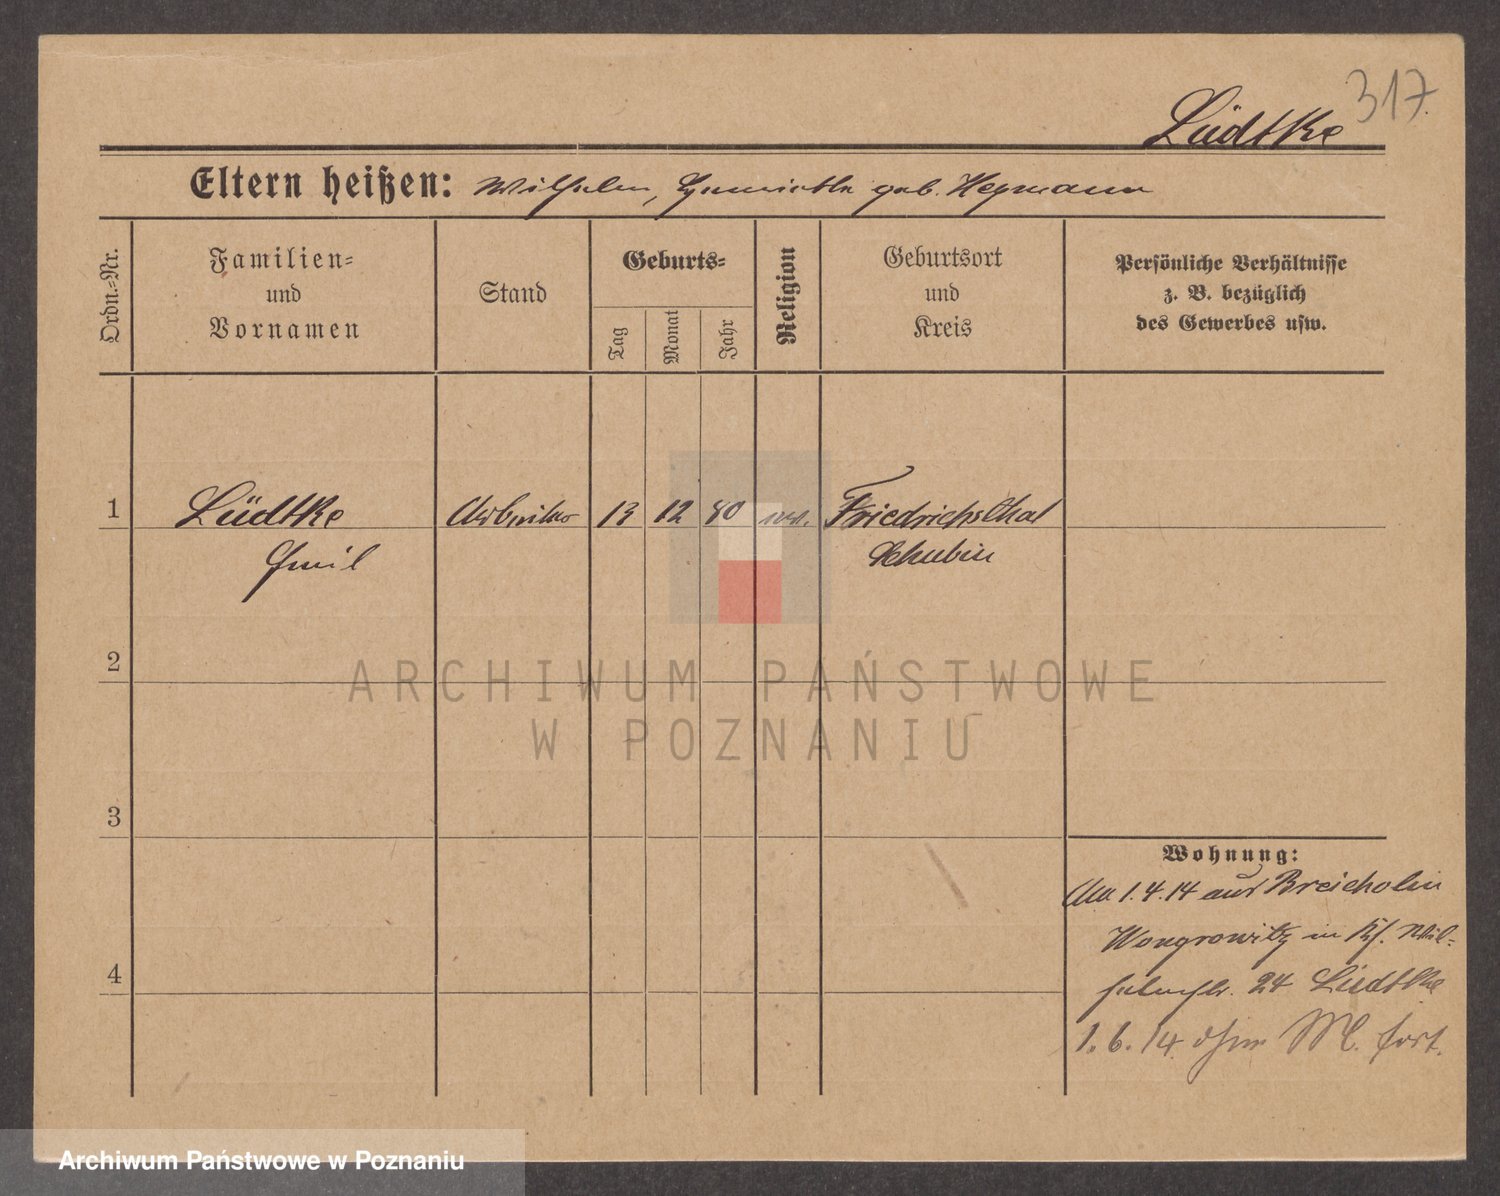 317.
Lüdtke
Eltern heißen: Wilhelm, Henriette geb. Heymann
Ordn.=Nr.
Familien=
und
Vornamen
Stand
Geburts=
Tag
Monat
Jahr
Religion
Geburtsort
und
Kreis
Persönliche Verhältnisse
z. B. bezüglich
des Gewerbes usw.
1 Lüdtke Arbeiter 13 12 80 ev. Friedrichsthal
Emil Schubin
2
3
4
Wohnung:
Am 1.4.14 aus
Wongrowitz in Wil=
helmstr. 24 Lüdtke
1.6.14 ohne M. fort.
ARCHIWUM PAŃSTWOWE
W POZNANIU
Archiwum Państwowe w Poznaniu